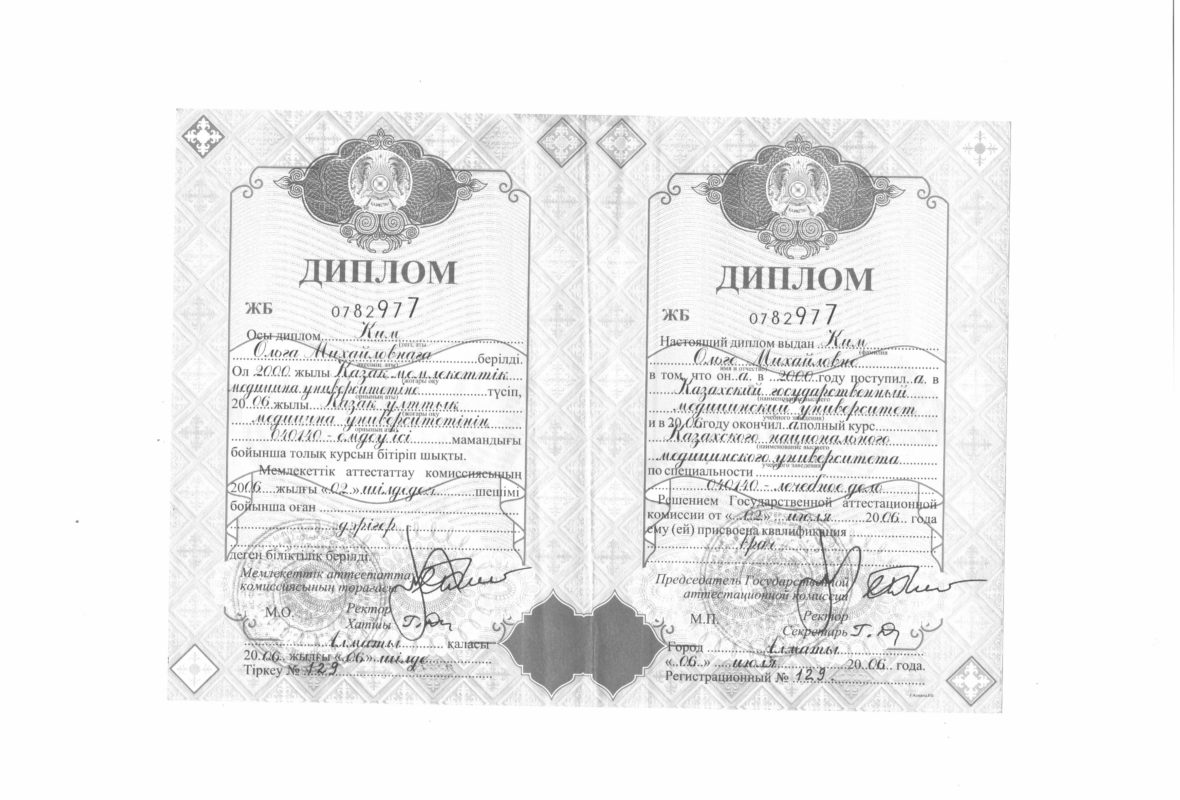 ДИПЛОМ
ЖБ 0782977
Осы диплом Ким
Ольга Михайловнаға берілді.
Ол 2000 жылы Қазақ мемлекеттік
медицина университетіне түсіп,
2006 жылы Қазақ ұлттық
медицина университетінің
040140 - емдеу ісі мамандығы
бойынша толық курсын бітіріп шықты.
Мемлекеттік аттестаттау комиссиясының
2006 жылғы «02» шілдедегі шешімі
бойынша оған
дәрігер
деген біліктілік берілді.
Мемлекеттік аттестаттау
комиссиясының төрағасы
М.О. Ректор
Хатшы
Алматы қаласы
2006 жылғы «06» шілде
Тіркеу № 129
ДИПЛОМ
ЖБ 0782977
Настоящий диплом выдан Ким
(фамилия
Ольге Михайловне
имя и отчество)
в том, что он а в 2000 году поступил а в
Казахский государственный
(наименование высшего
медицинский университет
учебного заведения)
и в 2006 году окончил а полный курс
Казахского национального
(наименование высшего
медицинского университета
учебного заведения)
по специальности
040140 - лечебное дело
Решением Государственной аттестационной
комиссии от «02» июля 2006 года
ему (ей) присвоена квалификация
врач
Председатель Государственной
аттестационной комиссии
М.П. Ректор
Секретарь
Город Алматы
«06» июля 2006 года.
Регистрационный № 129